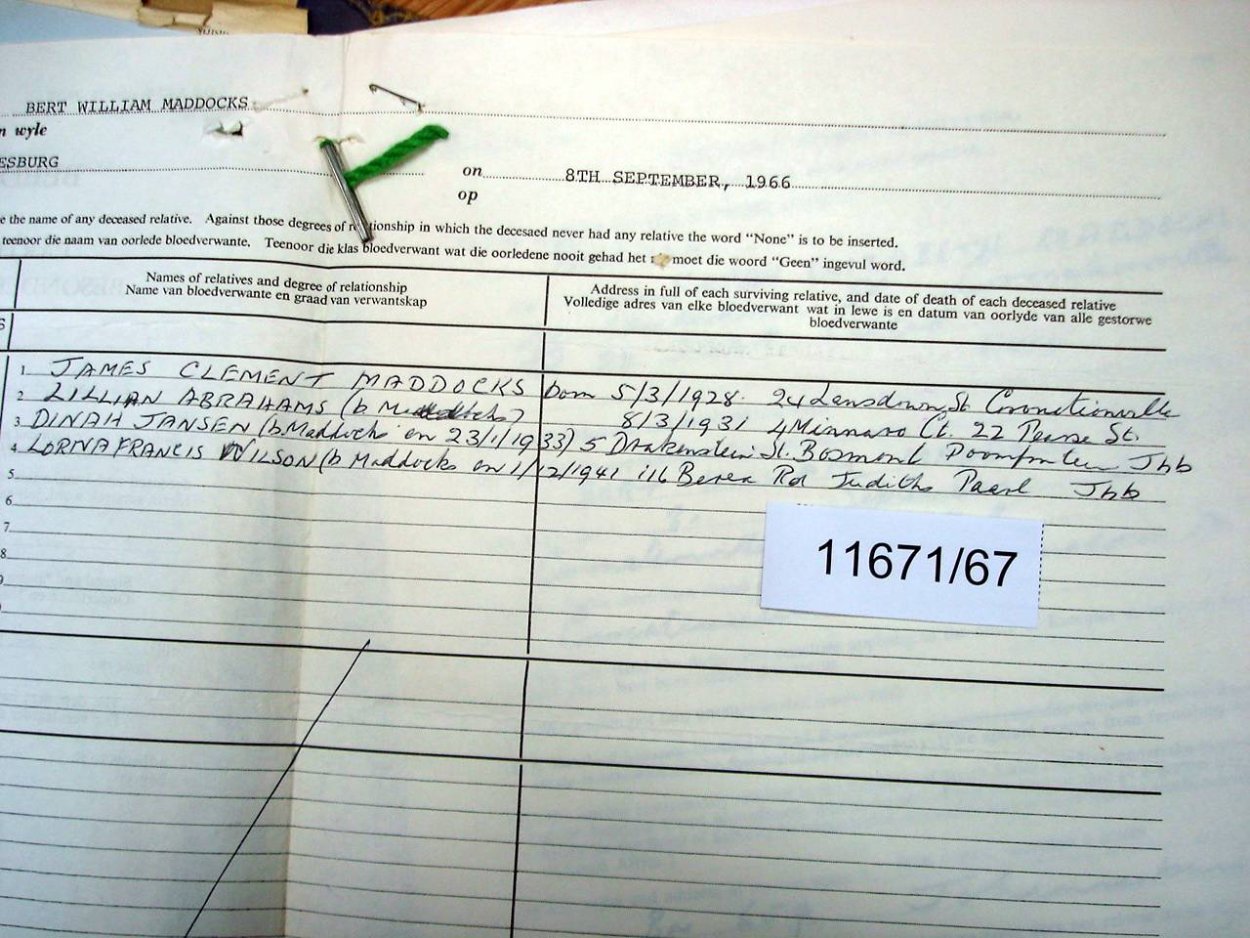 BERT WILLIAM MADDOCKS
n wyle
ESBURG
on 8TH SEPTEMBER, 1966
op
e the name of any deceased relative. Against those degrees of relationship in which the decesaed never had any relative the word "None" is to be inserted.
teenoor die naam van oorlede bloedverwante. Teenoor die klas bloedverwant wat die oorledene nooit gehad het moet die woord "Geen" ingevul word.
Names of relatives and degree of relationship
Name van bloedverwante en graad van verwantskap
Address in full of each surviving relative, and date of death of each deceased relative
Volledige adres van elke bloedverwant wat in lewe is en datum van oorlyde van alle gestorwe
bloedverwante
1. JAMES CLEMENT MADDOCKS born 5/3/1928. 24 Lansdown St. Coronationville
2 LILLIAN ABRAHAMS (b Maddocks) 8/3/1931 4 Court. 22 Pearse St.
3. DINAH JANSEN (b. Maddocks on 23/1/1933) 5 Drakenstein St. Bosmont Jhb
4. LORNA FRANCIS WILSON (b Maddocks on 1/12/1941 116 Berea Rd Judiths Paarl Jhb
5.
6.
7.
8
9
11671/67